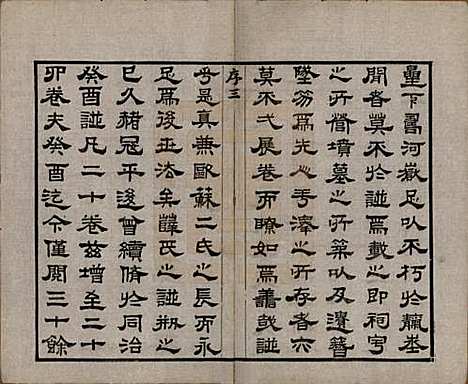 下爲河嶽足以不朽於
聞者莫不於諩焉載之即祠宇
之所營墳墓之所築以及遺簪
墜笏爲先人手澤之所存者亦
莫不弌展卷而瞭如焉蓋我諩
序三
乎是真兼歐蘇二氏之長而永
足爲後世法矣薛氏之諩刱之
已久赭冠平後曾續脩於同治
癸酉諩凡二十卷茲增至二十
卯卷夫癸酉迄今僅閱三十餘